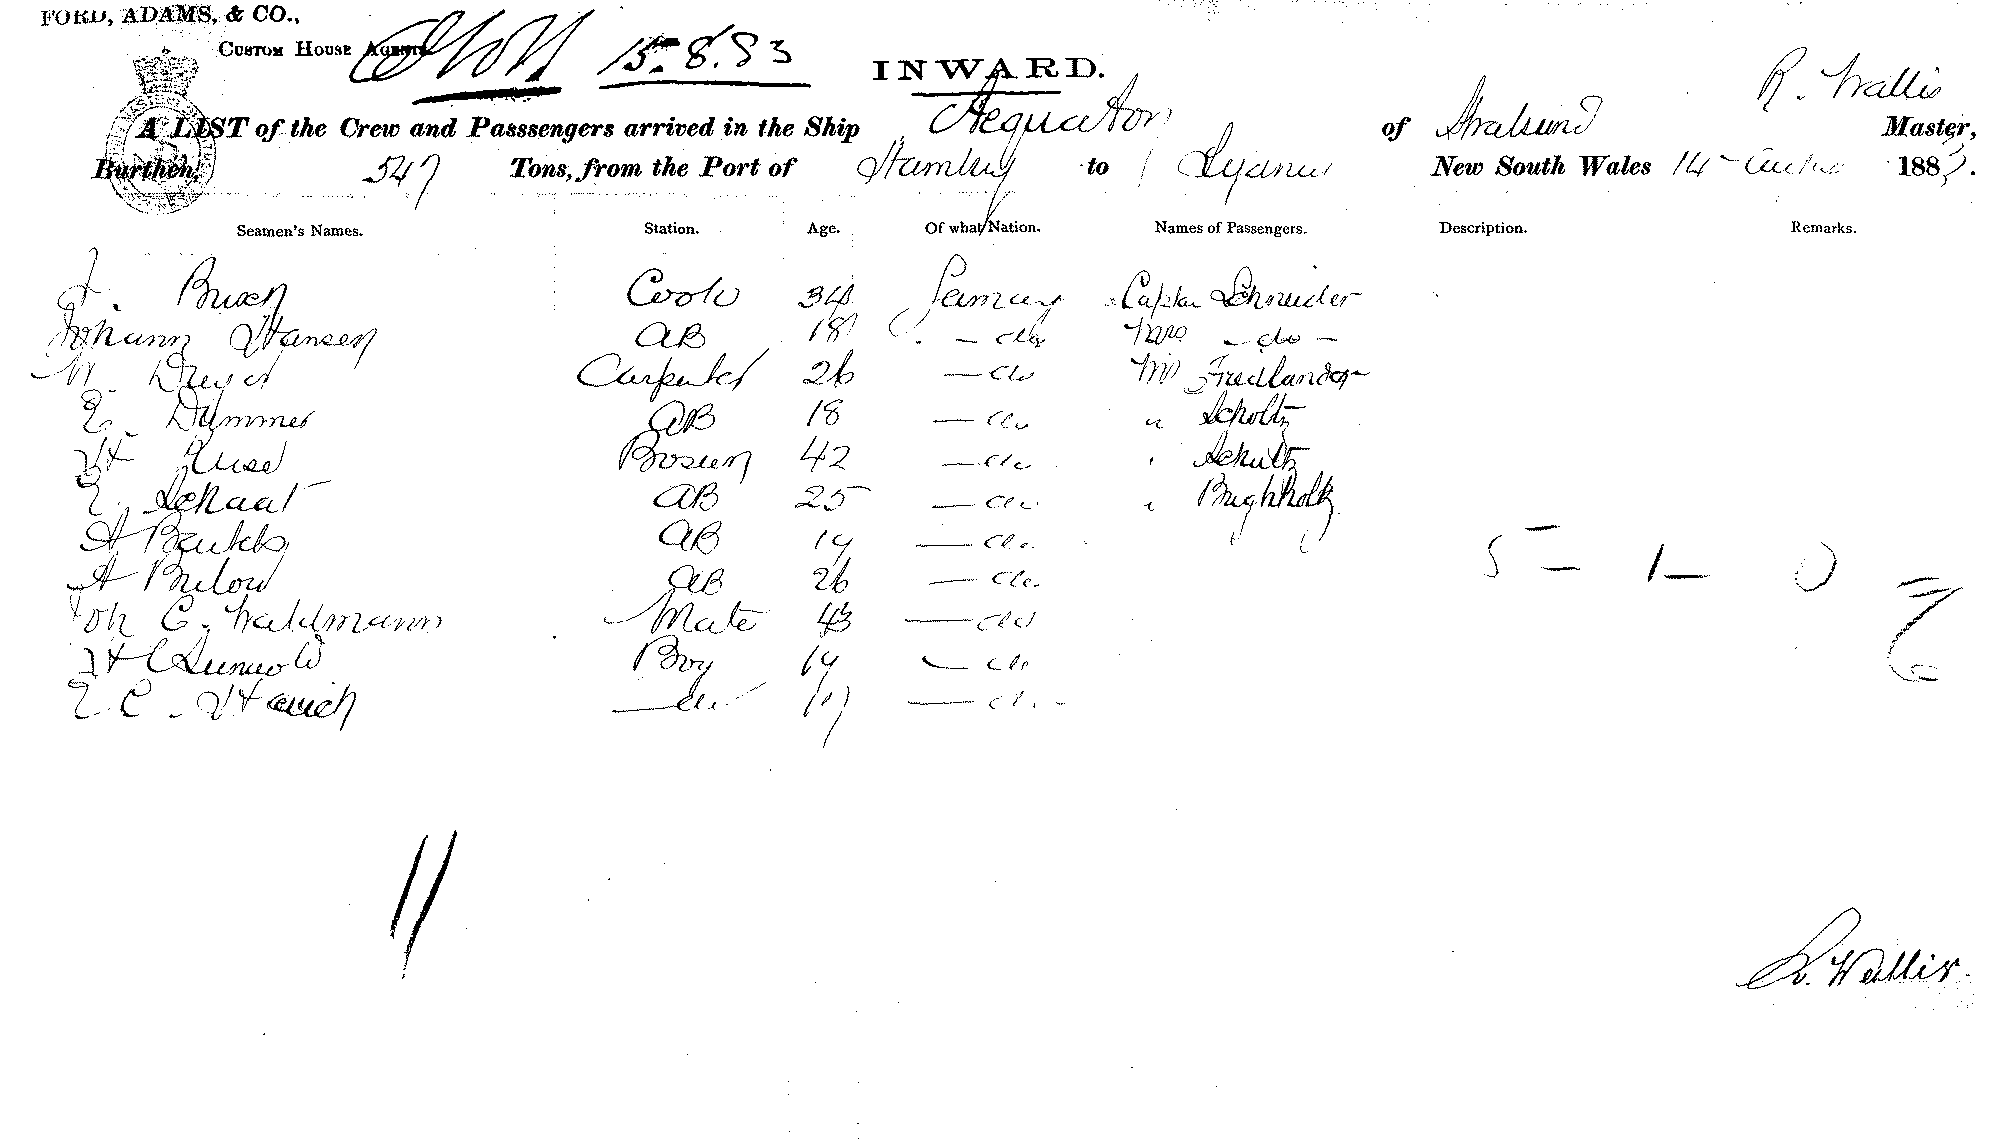 FORD, ADAMS, & CO.,
CUSTOM HOUSE AGENTS
15.8.83
INWARD.
R. Wallis
A LIST of the Crew and Passsengers arrived in the Ship Aequator of Stralsund Master,
Burthen, 547 Tons, from the Port of Hamburg to Sydney New South Wales 14 1883.
Seamen's Names. Station. Age. Of what Nation. Names of Passengers. Description. Remarks.
J. Busch Cook 34 Germany Captn Schneider
Johann Hansen AB 18 - do Mrs - do -
M. Dreyer Carpenter 26 - do Mr Fredlander
E. Dummer AB 18 - do " Scholtz
H Kruse Bosun 42 - do " Schultz
E. Schaat AB 25 - do "
A AB 19 - do
A Bulow AB 26 - do 5 - 1 - 0 = 6
Joh C. Waldmann Mate 43 - do
H Boy 19 - do
E. C. - do 17 - do -
11
R. Wallis.